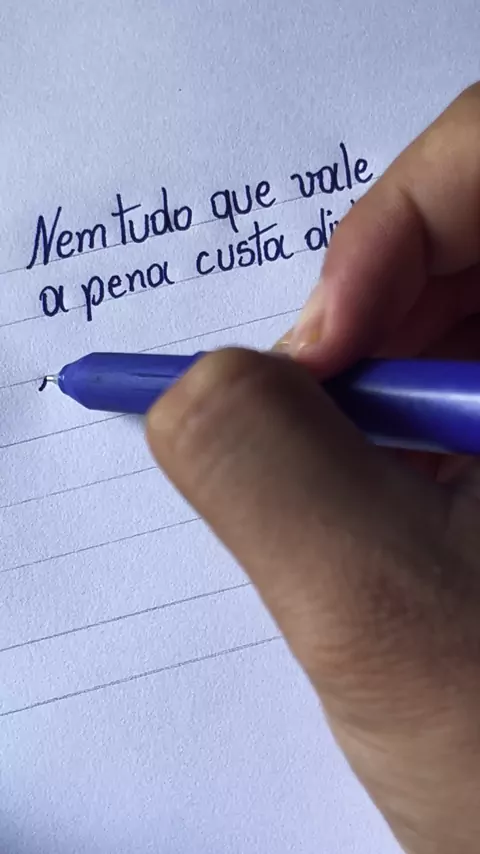 Nem tudo que vale
a pena custa